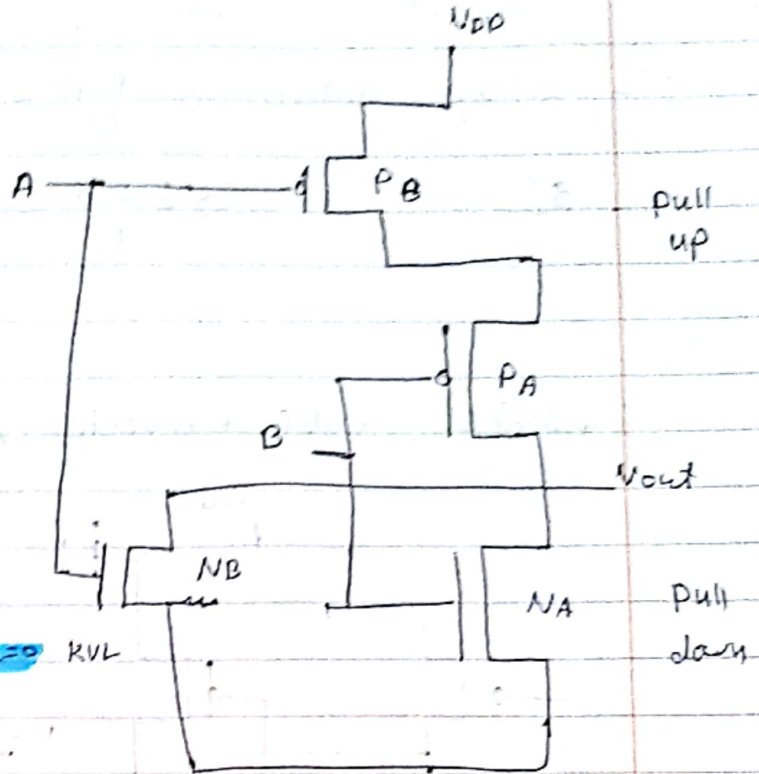 VDD
A
PB
Pull
up
PA
B
Vout
NB
NA
Pull
down
=0 KVL